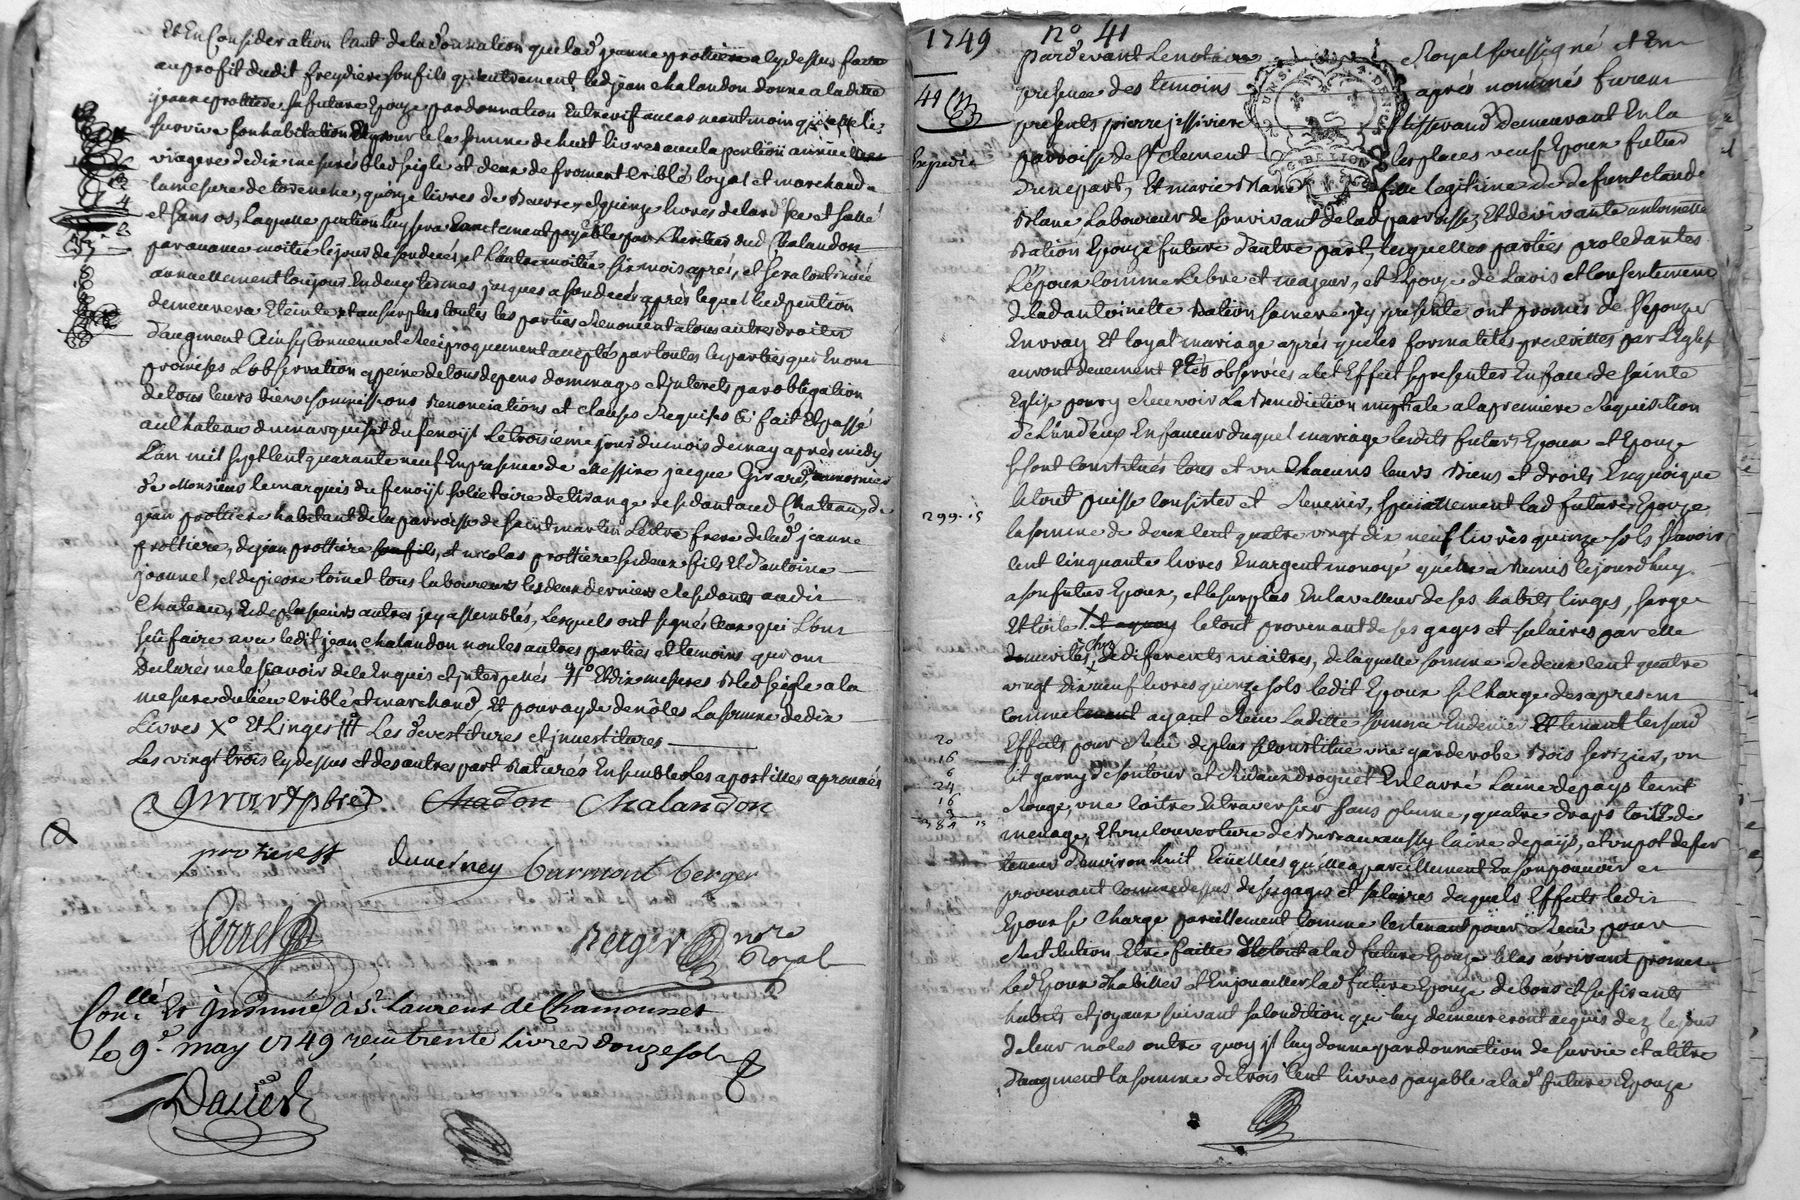 Et En Consideration tant de la donnation que lad. jeanne prottiere a cy dessus faite
au profit dudit freydiere son fils qu'autrement, led. jean chalandon donne a ladite
jeanne prottiere sa future Epouze par donnation Entrevif au cas neantmoin qu'elle luy
survive son habitation la somme de huit livres avec la pention annuelle
viagere de dix mesures bled seigle et deux de froment criblé loyal et marchand a
la mesure de quinze livres de Beurre, et quinze livres de lard sec et sallé
et sans os, laquelle pention luy sera Exactement payable par les heritiers dud. Chalandon
par avance moitié le jour de son decés, et l'autre moitié six mois aprés, et sera continuée
annuellement toujours En deux termes jusques a son decés aprés lequel lad. pention
demeurera Eteinte et au surplus toutes les parties Renoncent a tous autres droits
d'augment Ainsy Convenu et Reciproquement accepté par toutes les parties qui En ont
promises L'observation a peine de tous depens dommages et interets par obligation
de tous leurs biens soumissions Renonciations et clauses Requises &c fait Et passé
au Château du marquisat du fenoyl Le troisieme jour du mois de may aprés midy
L'an mil sept cent quarante neuf En presence de Messire jacque Girard, aumonier
de Monsieur le marquis du fenoyl residant aud. Chateau, de
jean prottiere habitant de la parroisse de saint martin frere de lad. jeanne
prottiere, de jean prottiere son fils, et nicolas prottiere
joannet, et de pierre toinet tous laboureurs les deux derniers Residants audit
Chateau, Et de plusieurs autres icy assemblés, Lesquels ont signés Ceux qui L'ont
sçu faire avec ledit jean chalandon non les autres parties et temoins qui ont
Declarés ne le sçavoir de ce Enquis et interpellés Et dix mesures bled seigle a la
mesure du lieu criblé et marchand, Et pour ayde de nôces La somme de dix
Livres X° Et Linges Les devestitures et investitures
Les vingt trois cy dessus et des autres part Raturés Ensemble les apostilles aprouvés
Girard pbre Chadon Chalandon
protiere duverney Carmont berger
Perret
Berger nore Royal
Con.llé Et Insinué a St. Laurent de Chamousset
le 9e. may 1749 reçu trente Livres douze sols
Dasier
1749 n° 41
41
Expedié
pardevant Le notaire Royal soussigné et En
presence des temoins aprés nommés furent
presents pierre tisserand demeurant En la
parroisse de St clement les places veuf Epoux futur
d'une part, Et marie Blanc fille legitime de defunt claude
Blanc Laboureur de son vivant de lad. parroisse, Et de vivante antoinette
Bation Epouze future d'autre part, lesquelles parties procedantes
L'Epoux comme Libre et majeur, et L'Epouze de L'avis et Consentement
de lad. antoinette Bation sa mere icy presente ont promis de s'Epouzer
En vray Et loyal mariage aprés que les formalités prescrittes par L'Eglise
auront deuement Etés observées a cet Effect se presenter En face de sainte
Eglise pour y Recevoir La Benediction nuptiale a la premiere Requisition
de L'un d'Eux En faveur duquel mariage lesdits futurs Epoux et Epouze
se sont Constitués tous et un Chacuns leurs Biens et droits En quoi que
le tout puisse consister et Revenir, specialement lad. future Epouze
299.15
la somme de deux cent quatre vingt dix neuf livres quinze sols sçavoir
cent cinquante livres En argent monoyé qu'elle a Remis ce jourd'huy
a son futur Epoux, et le surplus En la valleur de ses habits linges, sarge
Et toile X le tout provenant de ses gages et salaires par elle
de diferents maitres, de laquelle somme de deux cent quatre
vingt dix neuf livres quinze sols ledit Epoux se Charge des a present
comme ayant Reçu Ladite somme En deniers Et
20
16
6
24
16
3
Effets pour Reçu de plus se constitue une garderobe Bois serizier, un
lit garny de son tour et Rideaux droguet En laine de pays teint
Rouge, une coitre Et traversier sans plume, quatre draps toile de
menage, Et une couverture de Bureau aussy laine de pays, et un pot de fer
d'environ huit Ecuellées qu'elle a pareillement En son pouvoir et
provenant comme dessus de ses gages et salaires desquels Effects ledit
Epoux se Charge pareillement comme les tenant pour Reçu pour
Restitution Etre faitte a lad. future Epouze le cas arrivant promet
Led. Epoux d'habiller et Enjoualler lad. future Epouze de bons et sufisants
habits et joyaux suivant sa condition qui luy demeureront acquis dez le jour
de leur noces outre quoy il luy donne par donnation de survie et a titre
d'augment la somme de trois cent livres payable a lad. future Epouze